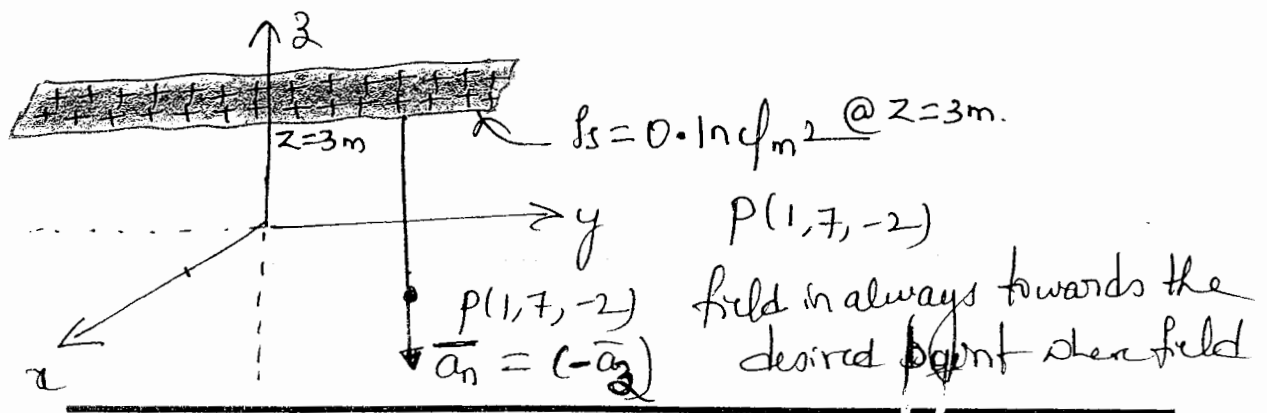 z
z=3m
ρs = 0.1nc/m² @ z=3m.
y
P(1,7,-2)
P(1,7,-2)
field in always towards the
a̅n = (-a̅z)
desired point when field
x